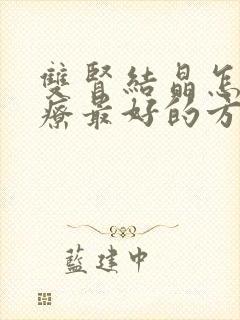 雙腎結晶怎
療最好的方
藍建中